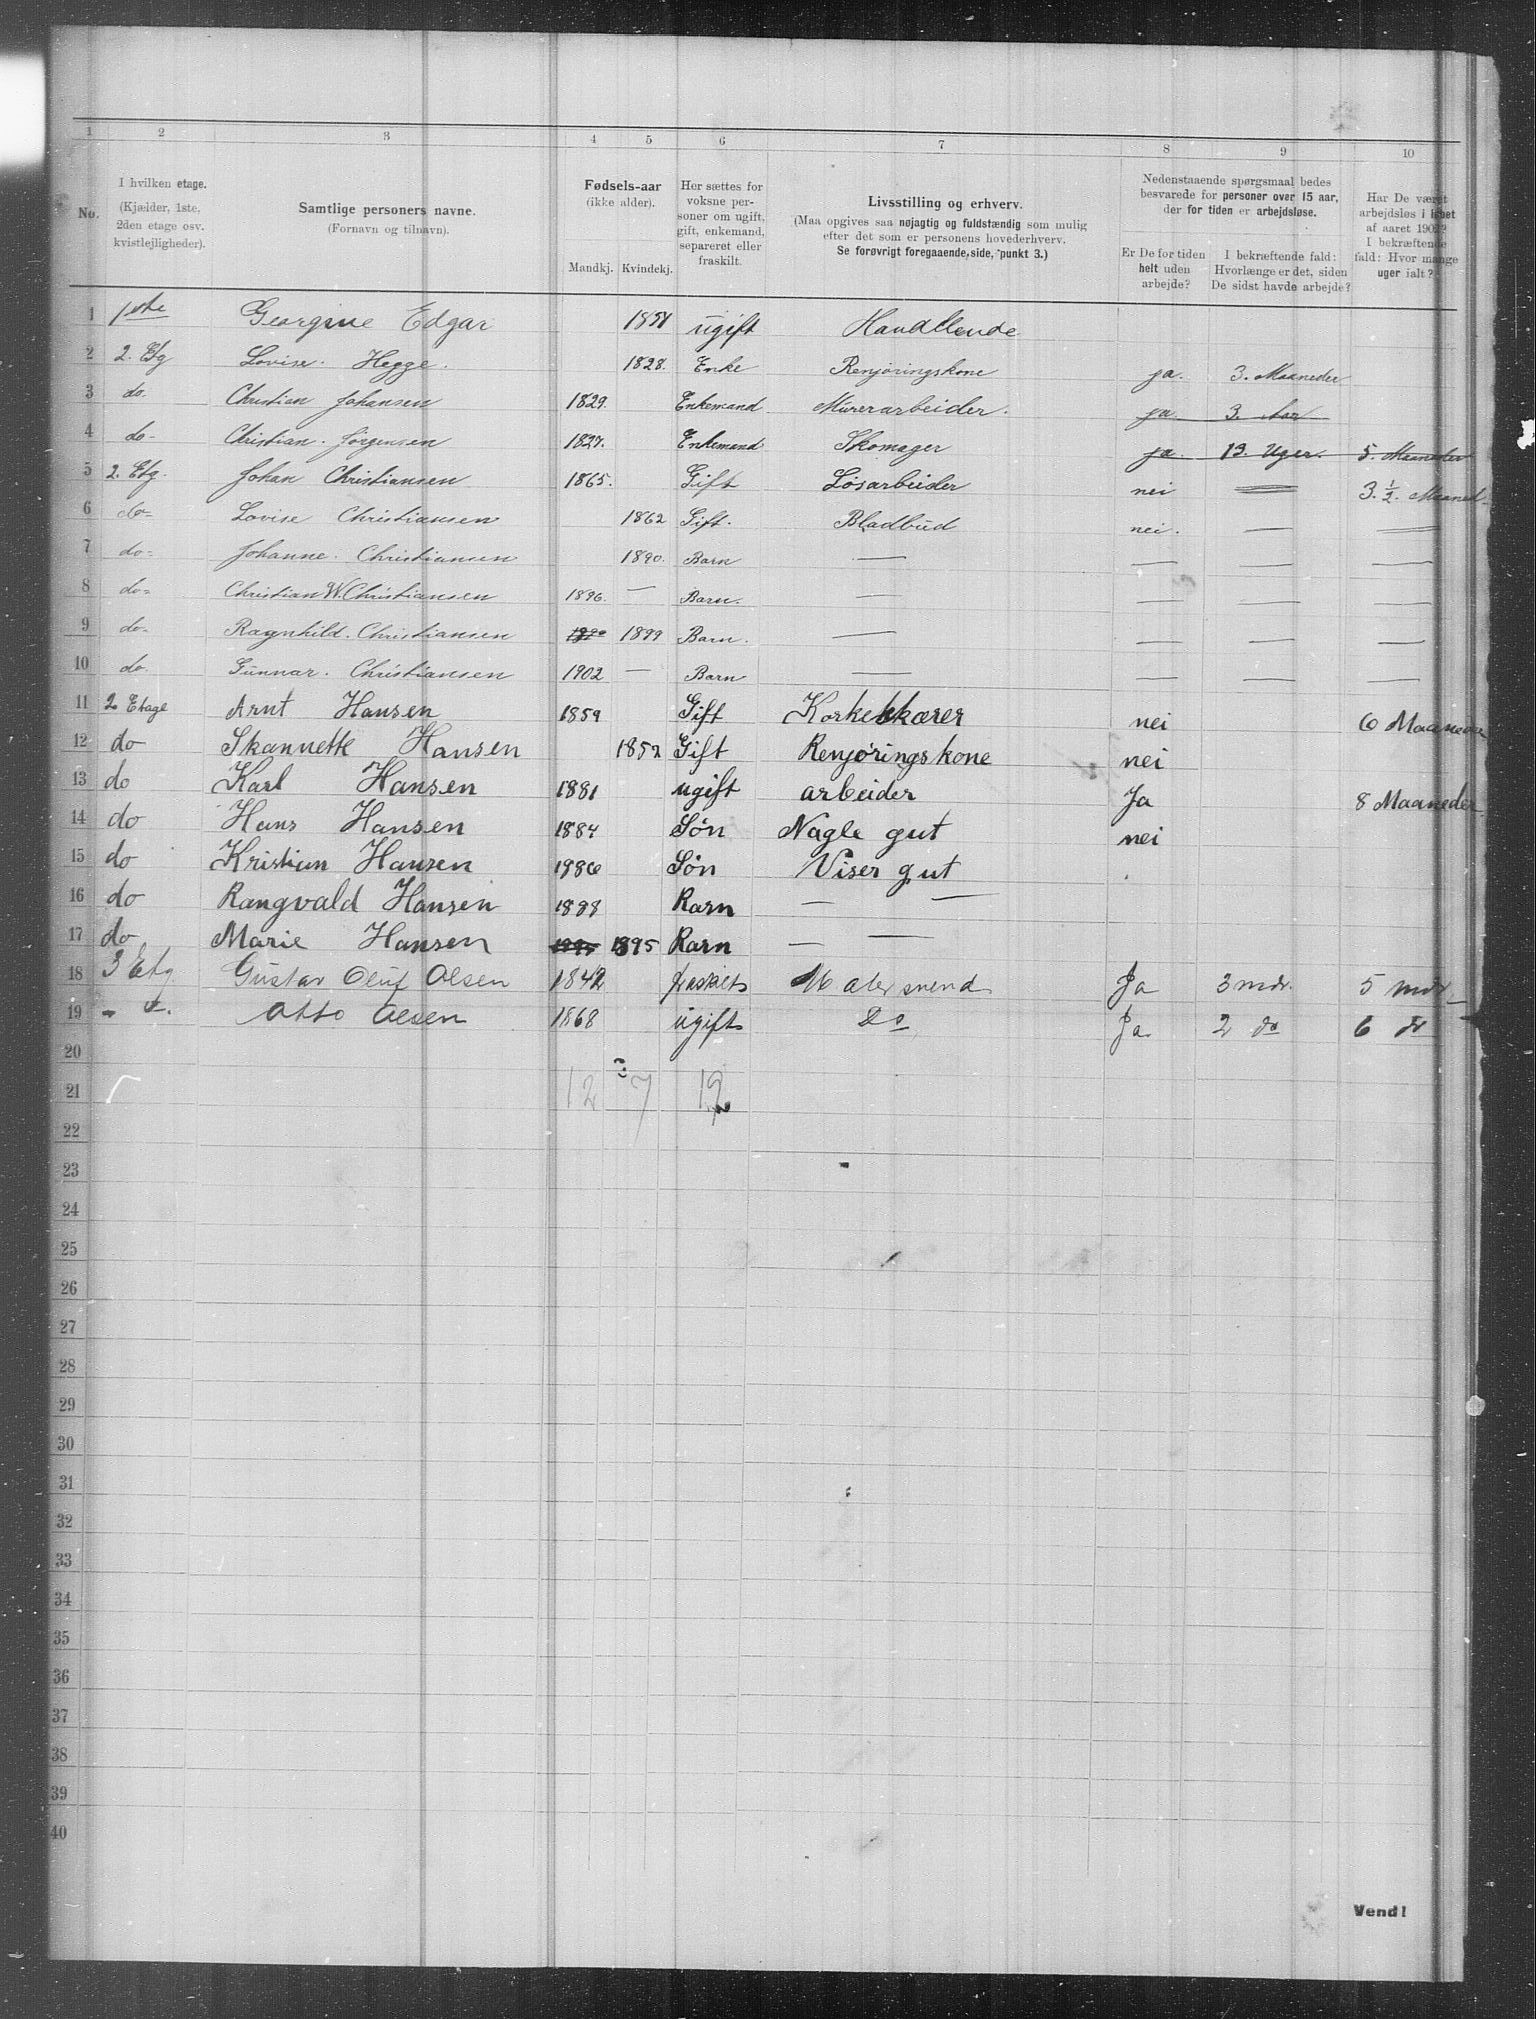 1 2 3 4 5 6 7 8 9 10
No.
I hvilken etage.
(Kjælder, 1ste, 2den etage osv. kvistlejligheder).
Samtlige personers navne.
(Fornavn og tilnavn).
Fødsels-aar
(ikke alder).
Mandkj. Kvindekj.
Her sættes for voksne personer om ugift, gift, enkemand, separeret eller fraskilt.
Livsstilling og erhverv.
(Maa opgives saa nøjagtig og fuldstændig som mulig
efter det som er personens hovederhverv.
Se forøvrigt foregaaende side, punkt 3.)
Nedenstaaende spørgsmaal bedes
besvarede for personer over 15 aar,
der for tiden er arbejdsløse.
Er De for tiden helt uden arbejde?
I bekræftende fald:
Hvorlænge er det, siden
De sidst havde arbejde?
Har De været
arbejdsløs i løbet
af aaret 190?
I bekræftende
fald: Hvor mange
uger ialt?
1 1ste Georgine Edgar 1851 ugift Handlende
2 2. Etg Lovise. Hegge. 1828. Enke Renjøringskone ja. 3. Maaneder
3 do. Christian Johansen 1829. Enkemand Murerarbeider. ja. 3. Aar
4 do- Christian. Jørgensen 1827. Enkemand Skomager ja. 13. Uger. 5. Maaneder
5 2. Etg. Johan Christiansen 1865. Gift Løsarbeider nei — 3. 1/2. Maaned
6 do- Lovise Christiansen 1862 Gift. Bladbud nei. — —
7 do- Johanne. Christiansen 1890. Barn — — — —
8 do- Christian W. Christiansen 1896. — Barn. — — — —
9 do- Ragnhild. Christiansen 1899 Barn. — — — —
10 do. Gunnar. Christiansen 1902 — Barn — — — —
11 2 Etage Arnt Hansen 1859 Gift Korkeskærer nei 6 Maaneder
12 do Skannette Hansen 1852 Gift Renjøringskone nei
13 do Karl Hansen 1881 ugift arbeider Ja 8 Maaneder
14 do Hans Hansen 1884 Søn Nagle gut nei
15 do Kristian Hansen 1886 Søn Viser gut
16 do Rangvald Hansen 1888 Barn — —
17 do Marie Hansen 1895 Barn — —
18 3 Etg. Gustav Oluf Olsen 1842 fraskilt Malersvend Ja 3 mdr. 5 mdr
19 - " - Otto Olsen 1868 ugift Do Ja. 2 do 6 do
20
21 12 7 19
22
23
24
25
26
27
28
29
30
31
32
33
34
35
36
37
38
39
40
Vend!